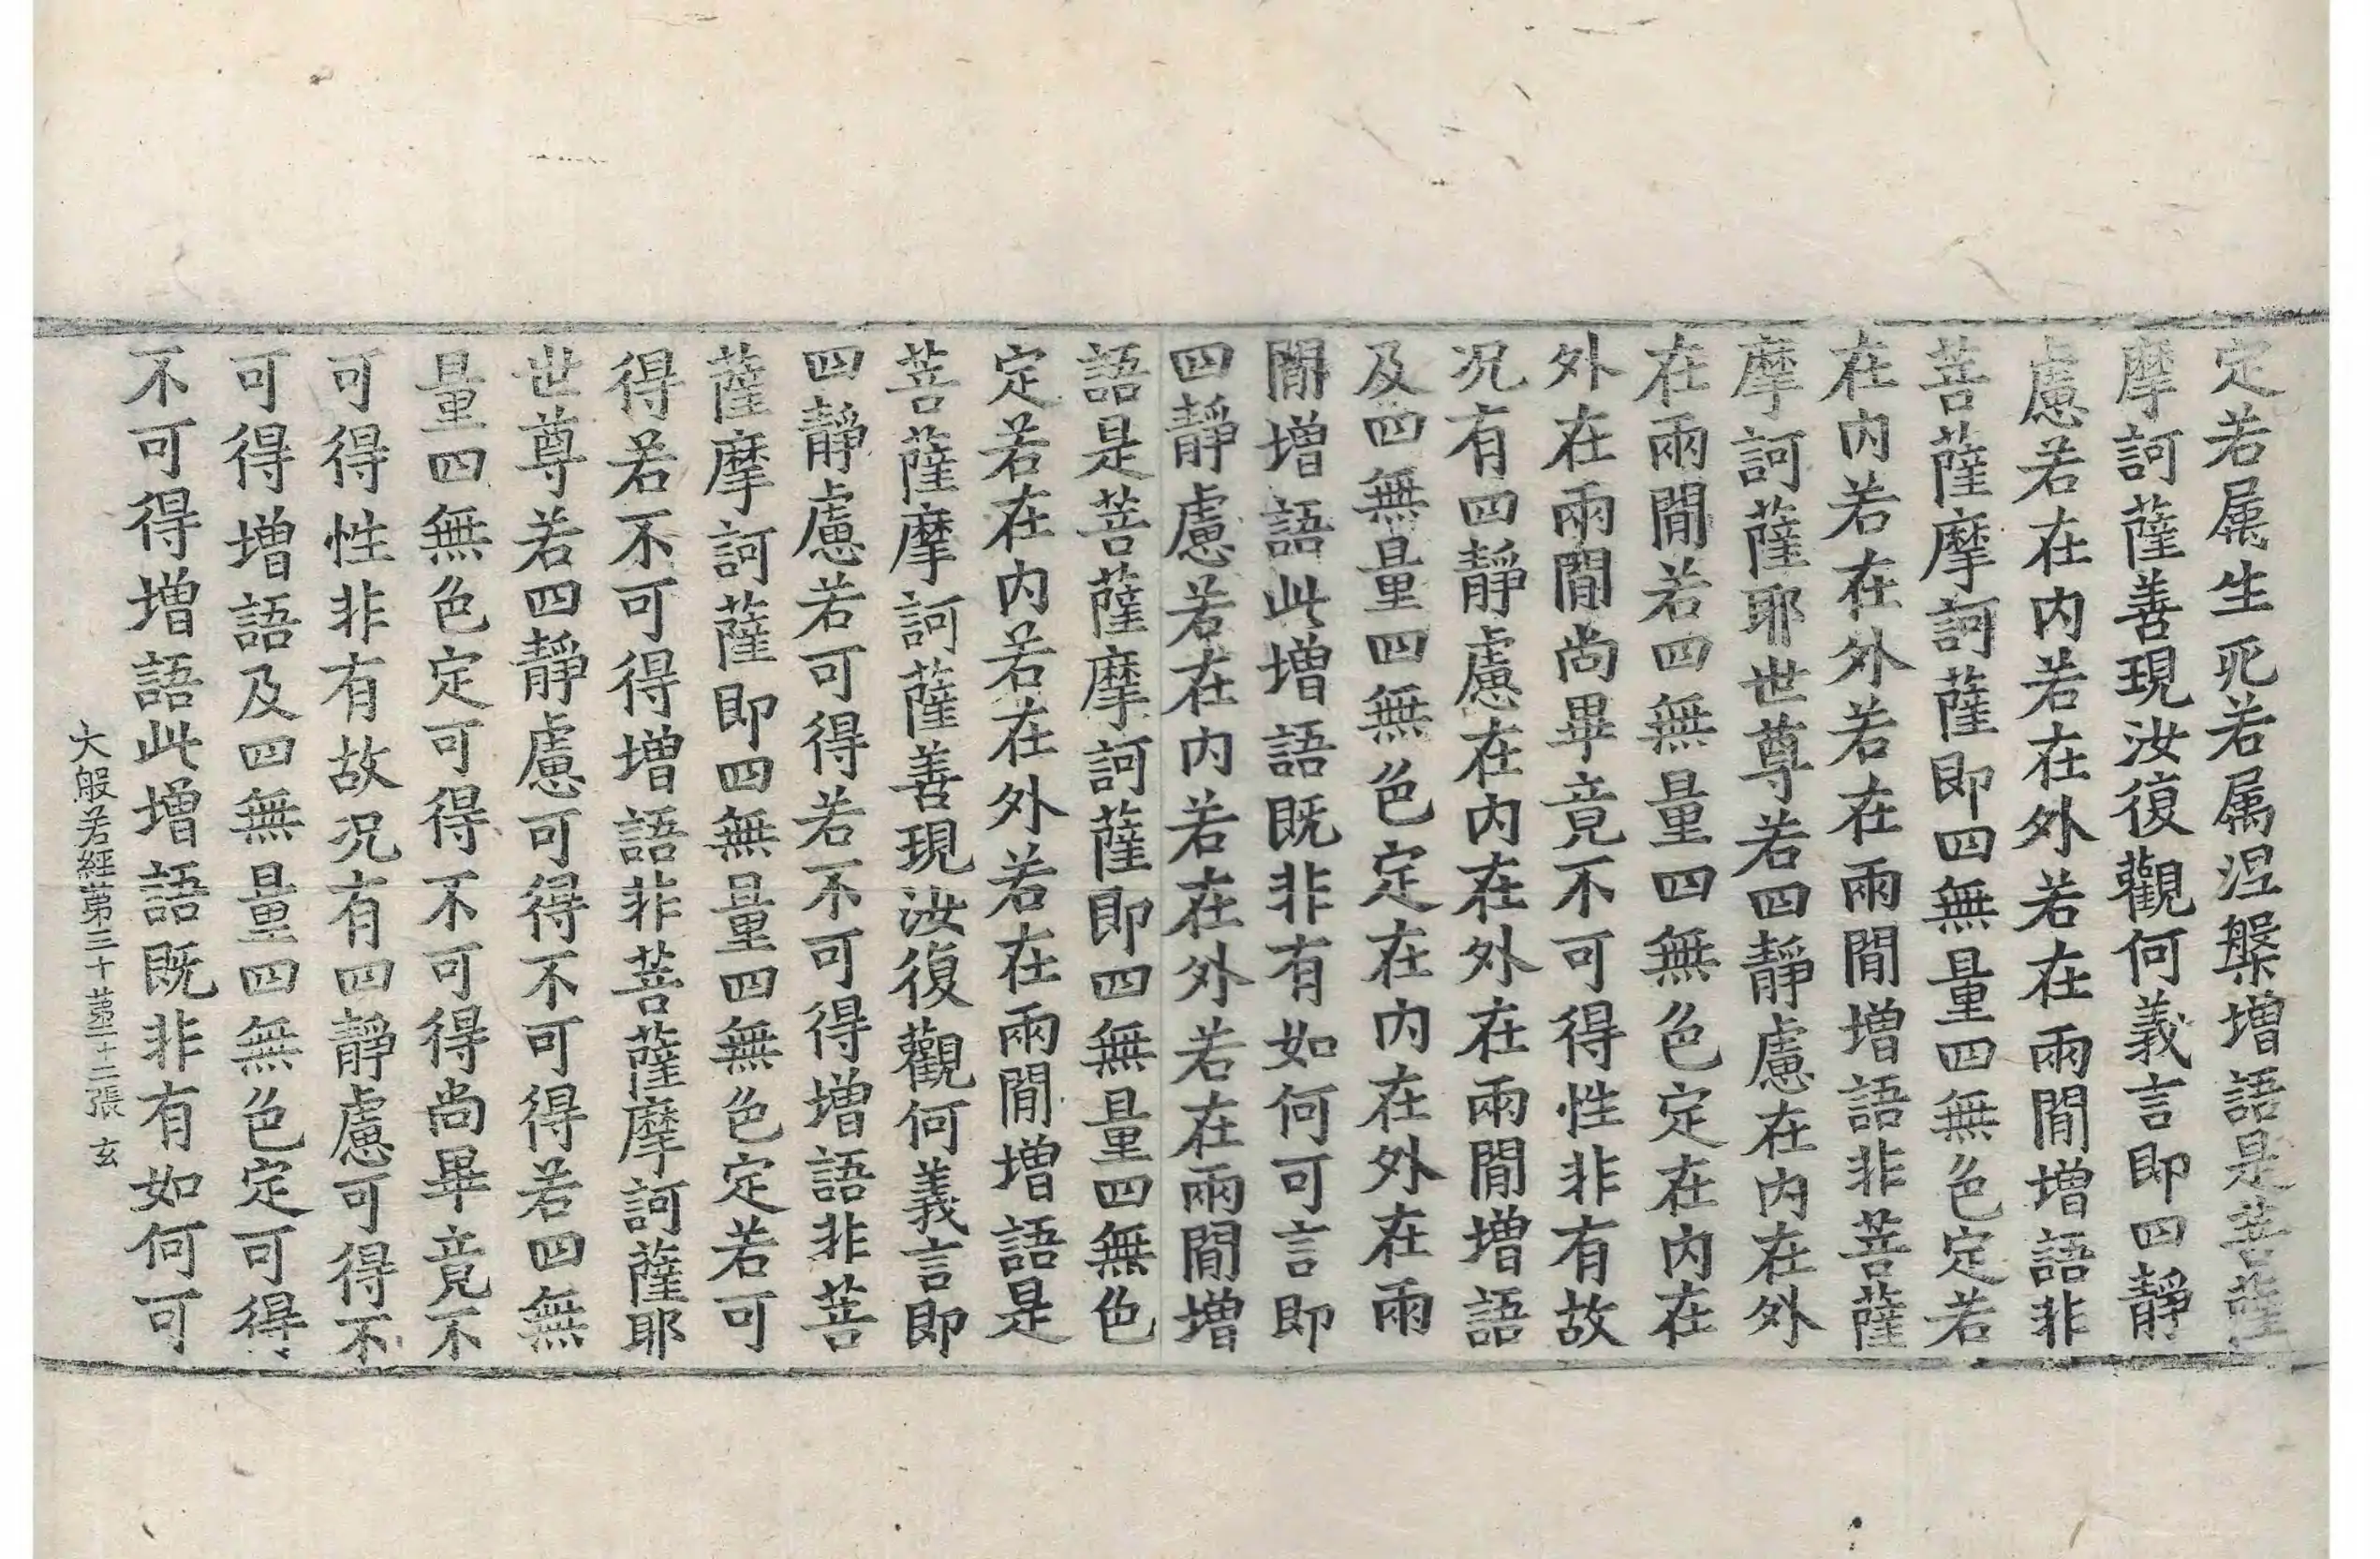 定若属生死若属涅槃增語是菩薩
摩訶薩善現汝復觀何義言即四靜
慮若在内若在外若在兩閒增語非
菩薩摩訶薩即四無量四無色定若
在内若在外若在兩閒增語非菩薩
摩訶薩耶世尊若四靜慮在内在外
在兩閒若四無量四無色定在内在
外在兩閒尚畢竟不可得性非有故
况有四靜慮在内在外在兩閒增語
及四無量四無色定在内在外在兩
閒增語此增語既非有如何可言即
四靜慮若在内若在外若在兩閒增
語是菩薩摩訶薩即四無量四無色
定若在内若在外若在兩閒增語是
菩薩摩訶薩善現汝復觀何義言即
四靜慮若可得若不可得增語非菩
薩摩訶薩即四無量四無色定若可
得若不可得增語非菩薩摩訶薩耶
世尊若四靜慮可得不可得若四無
量四無色定可得不可得尚畢竟不
可得性非有故况有四靜慮可得不
可得增語及四無量四無色定可得
不可得增語此增語既非有如何可
大般若經第三十 第二十二張 玄